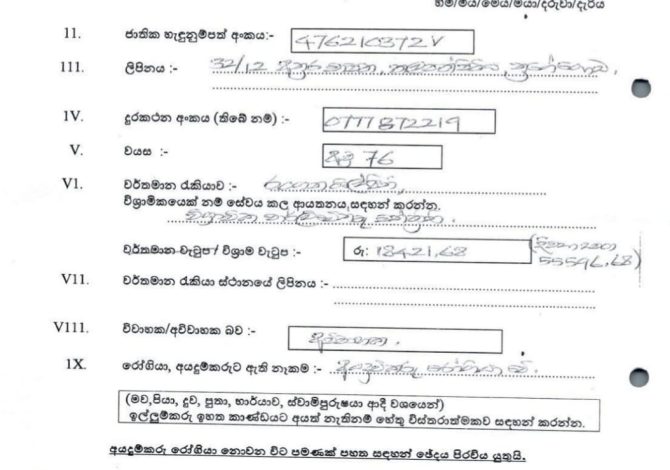 හිමි/මිය/මෙය/මයා/දරුවා/දැරිය
11. ජාතික හැඳුනුම්පත් අංකය:- 476210372V
111. ලිපිනය :- 32/12
1V. දුරකථන අංකය (තිබේ නම්) :- 0777872219
V. වයස :- අවු 76
V1. වර්තමාන රැකියාව :-
විශ්‍රාමිකයෙක් නම් සේවය කල ආයතනය සඳහන් කරන්න.
වර්තමාන වැටුප / විශ්‍රාම වැටුප :- රු: 18421.68
55596.68)
V11. වර්තමාන රැකියා ස්ථානයේ ලිපිනය :-
V111. විවාහක/අවිවාහක බව :-
1X. රෝගියා, අයදුම්කරුට ඇති නෑකම :- අයදුම්කරු රෝගියා වේ.
(මව,පියා, දුව, පුතා, භාර්යාව, ස්වාමිපුරුෂයා ආදී වශයෙන්)
ඉල්ලුම්කරු ඉහත කාණ්ඩයට අයත් නැතිනම් හේතු විස්තරාත්මකව සඳහන් කරන්න.
අයදුම්කරු රෝගියා නොවන විට පමණක් පහත සඳහන් ඡේදය පිරවිය යුතුයි.